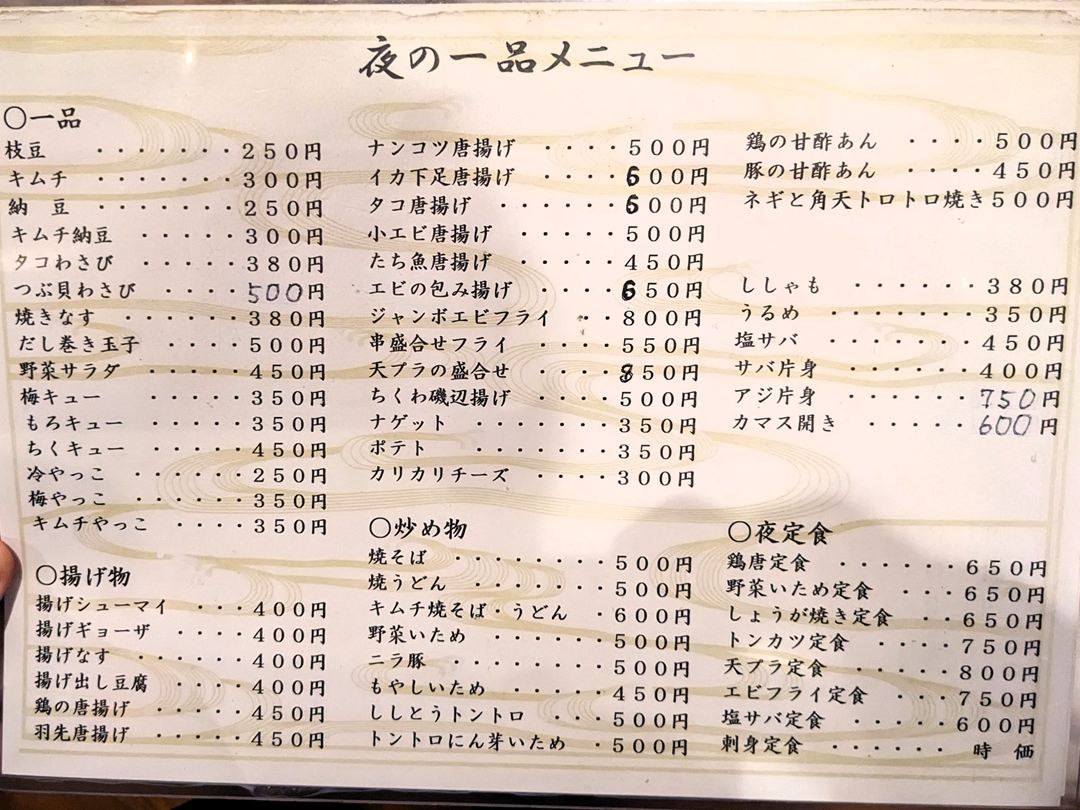 夜の一品メニュー
〇一品
枝豆 ・・・・・・・250円
キムチ ・・・・・・300円
納 豆 ・・・・・・・250円
キムチ納豆 ・・・・・300円
タコわさび ・・・・・380円
つぶ貝わさび ・・・・500円
焼きなす ・・・・・・380円
だし巻き玉子 ・・・・500円
野菜サラダ ・・・・・450円
梅キュー ・・・・・350円
もろキュー ・・・・・350円
ちくキュー ・・・・・450円
冷やっこ ・・・・・250円
梅やっこ ・・・・・350円
キムチやっこ ・・・・350円
〇揚げ物
揚げシューマイ ・・・400円
揚げギョーザ ・・・・400円
揚げなす ・・・・・・400円
揚げ出し豆腐 ・・・・400円
鶏の唐揚げ ・・・・・450円
羽先唐揚げ ・・・・・450円
ナンコツ唐揚げ ・・・・500円
イカ下足唐揚げ ・・・・600円
タコ唐揚げ ・・・・・・600円
小エビ唐揚げ ・・・・・500円
たち魚唐揚げ ・・・・・450円
エビの包み揚げ ・・・・650円
ジャンボエビフライ ・・800円
串盛合せフライ ・・・・550円
天プラの盛合せ ・・・・850円
ちくわ磯辺揚げ ・・・・500円
ナゲット ・・・・・・350円
ポテト ・・・・・・・350円
カリカリチーズ ・・・・300円
〇炒め物
焼そば ・・・・・・・・500円
焼うどん ・・・・・・・500円
キムチ焼そば・うどん ・600円
野菜いため ・・・・・・500円
ニラ豚 ・・・・・・・・500円
もやしいため ・・・・・450円
ししとうトントロ ・・・500円
トントロにん芽いため ・500円
鶏の甘酢あん ・・・・500円
豚の甘酢あん ・・・・450円
ネギと角天トロトロ焼き500円
ししゃも ・・・・・・380円
うるめ ・・・・・・・350円
塩サバ ・・・・・・450円
サバ片身 ・・・・・・400円
アジ片身 ・・・・・・750円
カマス開き ・・・・・600円
〇夜定食
鶏唐定食 ・・・・・・650円
野菜いため定食 ・・・650円
しょうが焼き定食 ・・・650円
トンカツ定食 ・・・・・750円
天プラ定食 ・・・・・・800円
エビフライ定食 ・・・750円
塩サバ定食 ・・・・・600円
刺身定食 ・・・・・・ 時 価